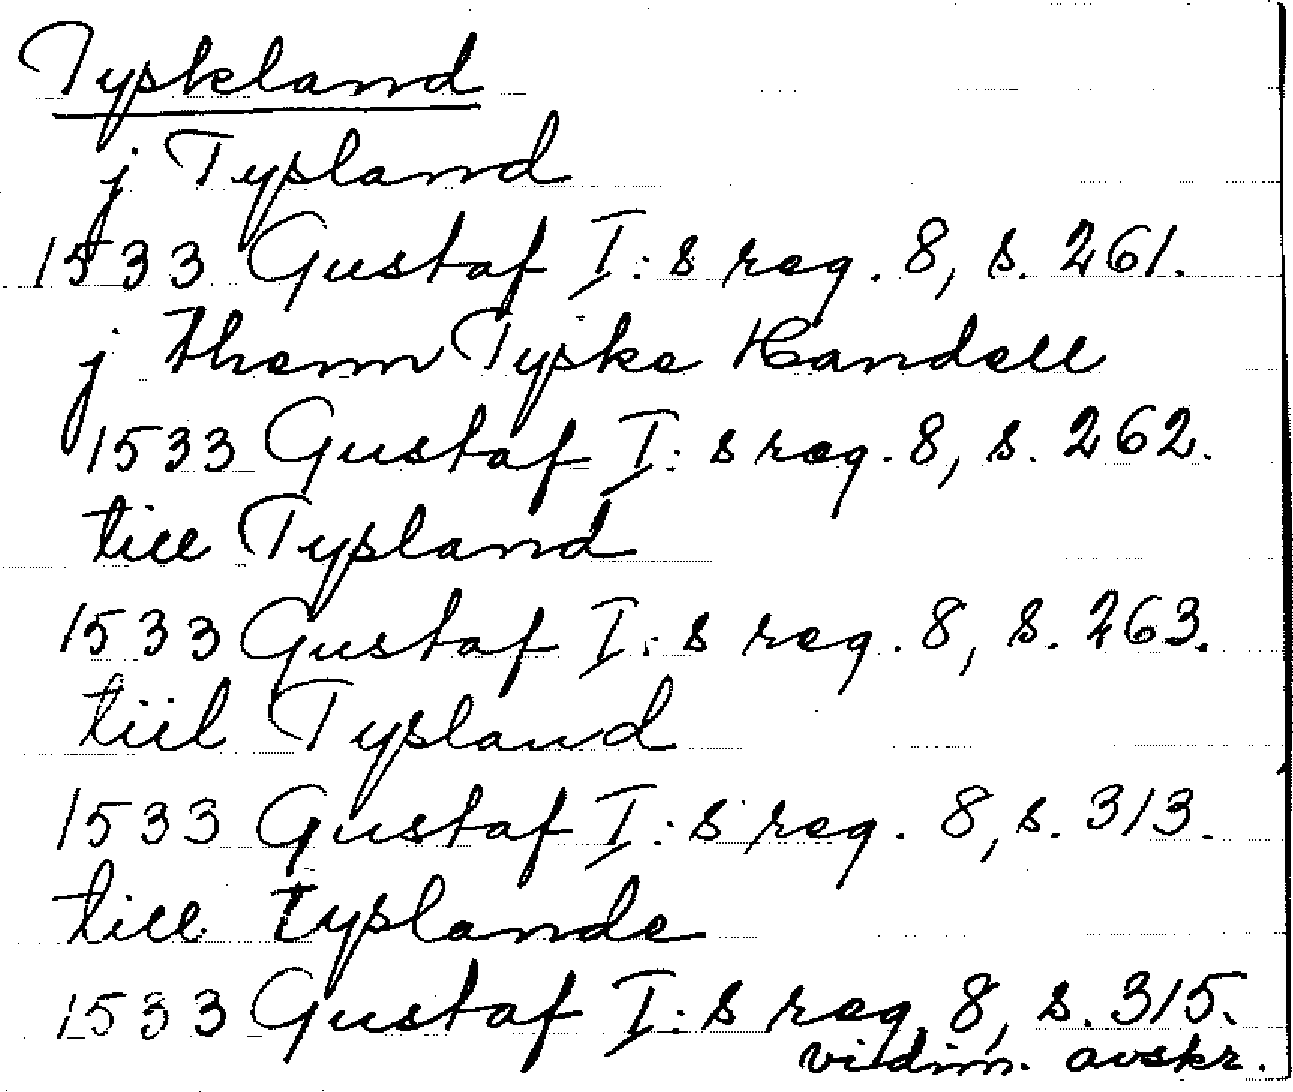 Tyskland
j Tysland
1533 Gustaf I:s reg. 8, s. 261.
j them Tyske Handell
1533 Gustaf I:s reg. 8, s. 262.
till Tysland
1533 Gustaf I:s reg. 8, s. 263.
tiil Tysland
1533 Gustaf I:s reg. 8, s. 313.
till tyslande
1533 Gustaf I:s reg. 8, s. 315.
vidim. avskr.